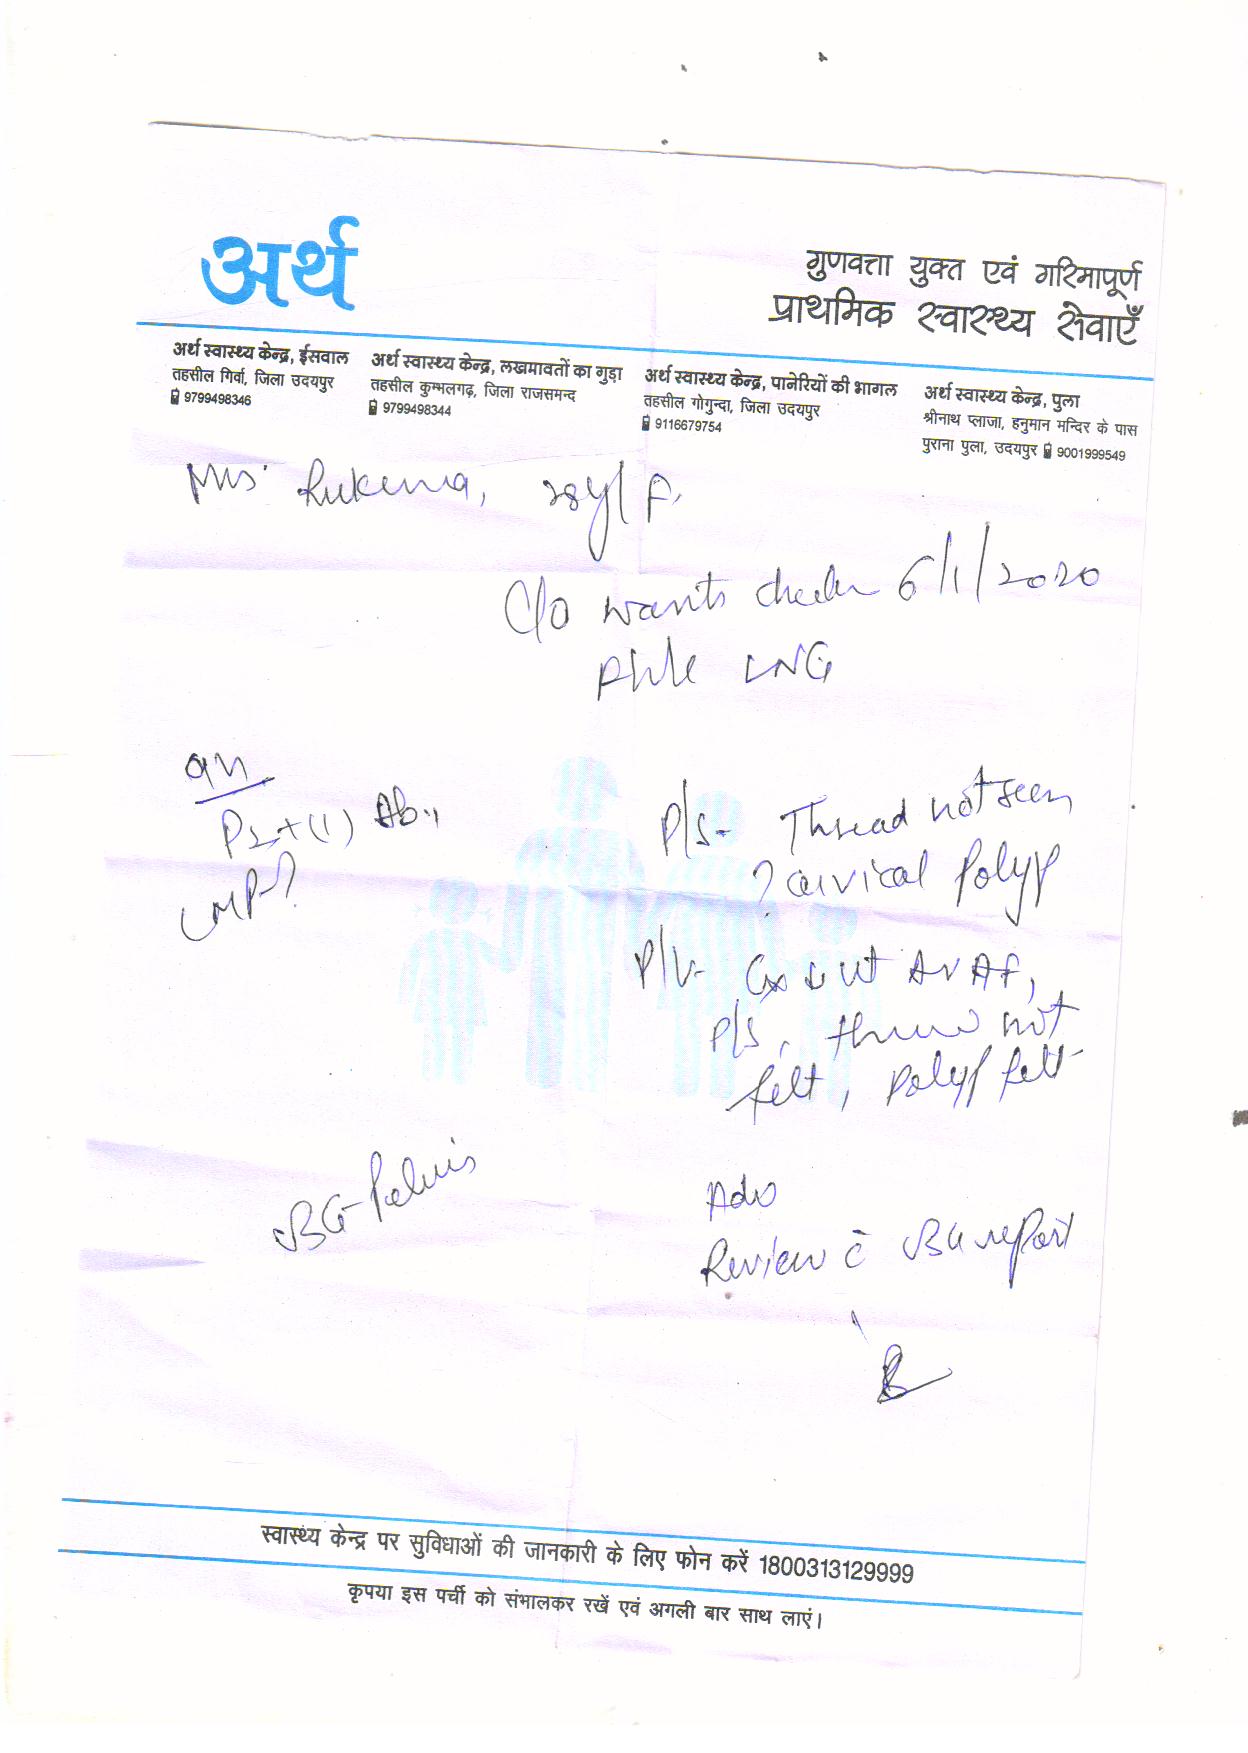 अर्थ
गुणवत्ता युक्त एवं गरिमापूर्ण
प्राथमिक स्वास्थ्य सेवाएँ
अर्थ स्वास्थ्य केन्द्र, ईसवाल
तहसील गिर्वा, जिला उदयपुर
9799498346
अर्थ स्वास्थ्य केन्द्र, लखमावतों का गुड़ा
तहसील कुम्भलगढ़, जिला राजसमन्द
9799498344
अर्थ स्वास्थ्य केन्द्र, पानेरियों की भागल
तहसील गोगुन्दा, जिला उदयपुर
9116679754
अर्थ स्वास्थ्य केन्द्र, पुला
श्रीनाथ प्लाजा, हनुमान मन्दिर के पास
पुराना पुला, उदयपुर 9001999549
Mrs. Rukema, 28y/F.
6/1/2020
C/o wants
LNG
P2+(1) Ab.
LMP-?
P/s- Thread not seen
? cervical Polyp
P/V- Cx ut AV AF,
P/S, not
felt, Polyp felt
Pelvis
Adv
Review c̄ report
स्वास्थ्य केन्द्र पर सुविधाओं की जानकारी के लिए फोन करें 1800313129999
कृपया इस पर्ची को संभालकर रखें एवं अगली बार साथ लाएं।